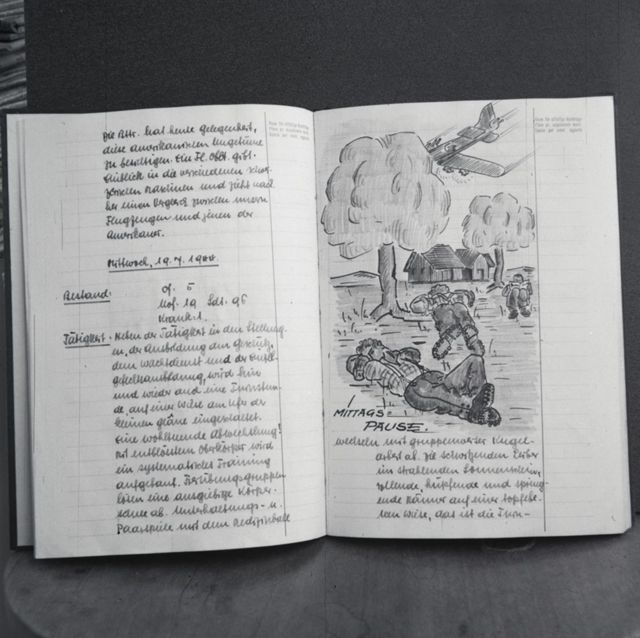 Die Bttr. hat heute gelegenheit,
diese amerikanischen Ungetüme
zu besichtigen. Ein Fl. Oblt. gibt
Einblick in die verschiedenen
Maschinen und zieht nach
her einen Vergleich zwischen unsern
Flugzeugen und jenen der
Amerikaner.
Mittwoch, 19.7.1944.
Bestand: Of. 5
Uof. 19 Sdt. 96
Krank: 1
Tätigkeit. Neben der Tätigkeit in den Stellung-
en, der Ausbildung am geschütz,
dem wachtdienst und der Einzel-
gefechtsausbildung, wird hin
und wieder auch eine Turnstun-
de, auf einer Wiese am Ufer der
kleinen glâne eingeschaltet.
Eine wohltuende Abwechslung!
Mit entblösstem Oberkörper wird
ein systematisches Training
aufgebaut. Freiübungsgruppen
lösen eine ausgiebige Körper-
schule ab. Unterhaltungs- u.
Paarspiele mit dem Medizinball
MITTAGS-
PAUSE.
wechseln mit gruppenweiser Kugel-
arbeit ab. Die schwitzenden Leiber
im strahlenden Sonnenschein,
rollende, hüpfende und spring-
ende Männer auf einer topfebe-
nen Wiese, das ist die Turn-